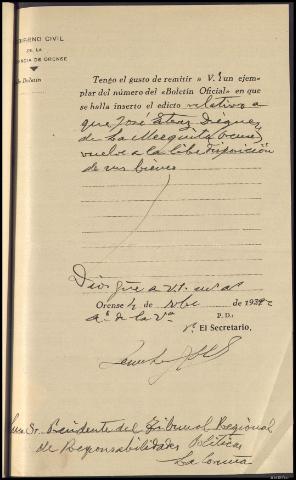 GOBIERNO CIVIL
DE LA
PROVINCIA DE ORENSE
Boletín
Tengo el gusto de remitir a V. I un ejem-
plar del número del «Boletín Oficial» en que
se halla inserto el edicto relativo a
que José Estevez Diéguez
de La Mezquita
vuelve a la libre disposición
de sus bienes
Dios gue a V. I. m. a.
Orense 4 de Nbre de 1939
Aº de la Vª P. D.:
El Secretario,
Sr. Presidente del Tribunal Regional
de Responsabilidades Políticas
La Coruña